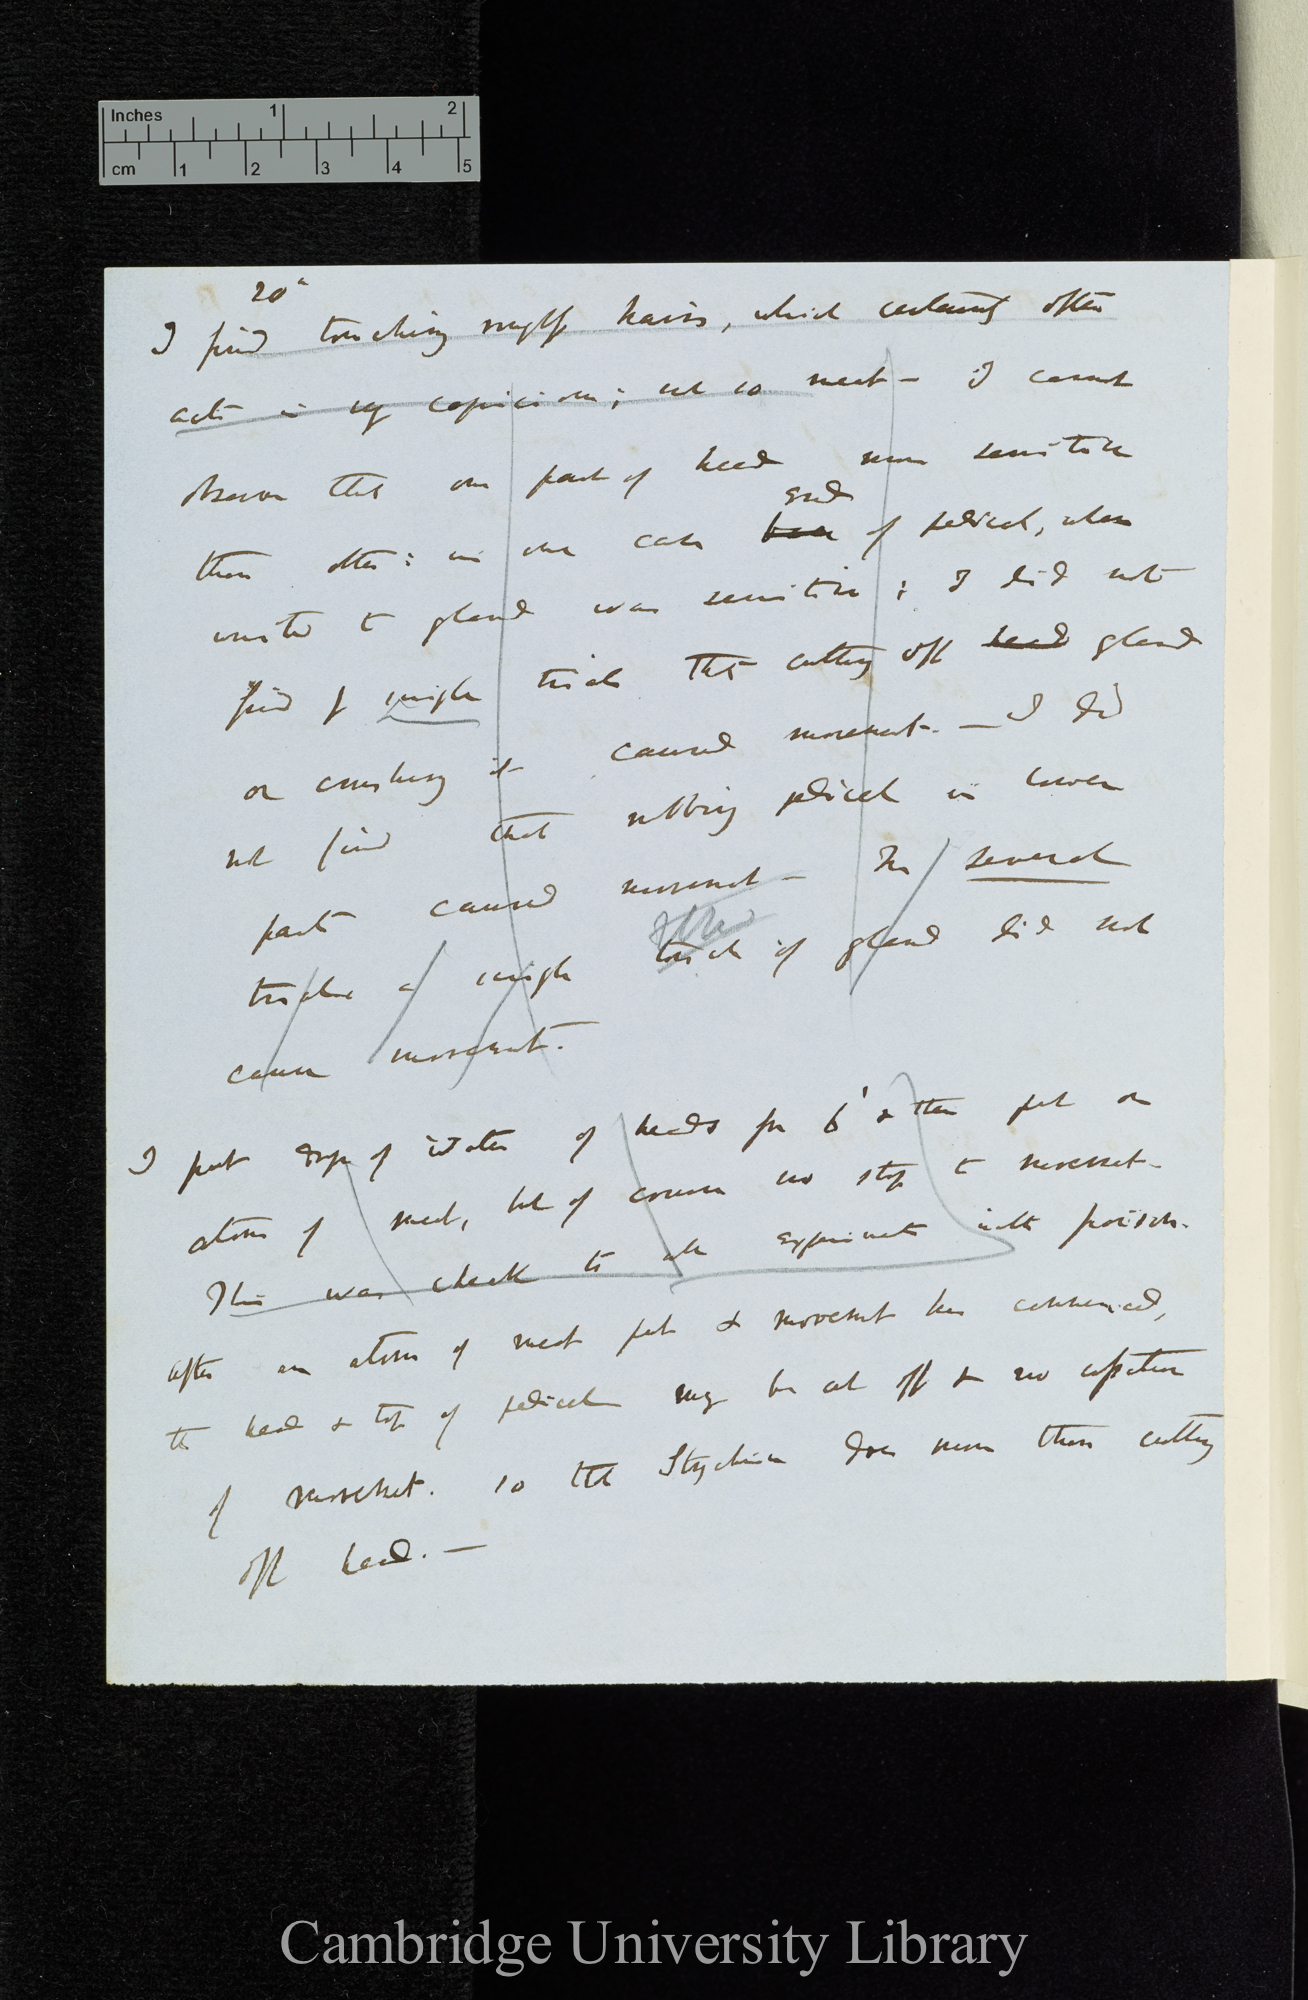 Inches 1 2
cm 1 2 3 4 5
20
I find touching single hairs, which certainly often
acts is very capricious; not so meat — I cannot
observe that one part of head more sensitive
end
than other: in one case of pedicel, when
united to gland was sensitive; I did not
find f single trials that cutting off head gland
or crushing it caused movement. — I did
not find that rubbing pedicel in lower
part caused movement — In several
trials a single touch of gland did not
cause movement.
I put drop of water of heads for 6' & then put on
atom of meat, but of course no stop to movement.
This was check to all experiments with poison.
After an atom of meat put & movement has commenced,
the head & top of pedicel may be cut off & no
of movement. so that Strychnine does more than cutting
off head. —
Cambridge University Library